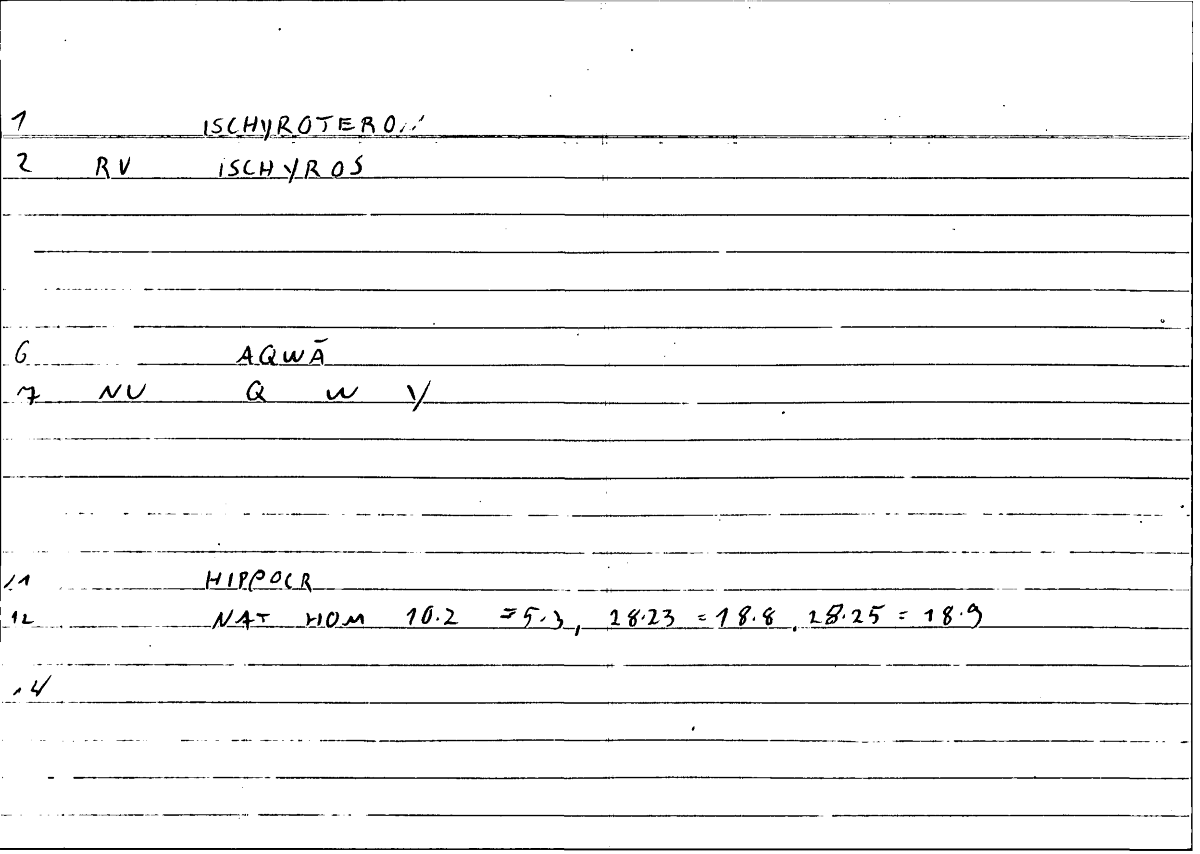 1 ISCHYROTERO
2 RV ISCHYROS
6 AQWĀ
7 NU Q W Y
11 HIPPOCR
12 NAT HOM 10.2 = 5.3, 28.23 = 18.8, 28.25 = 18.9
14